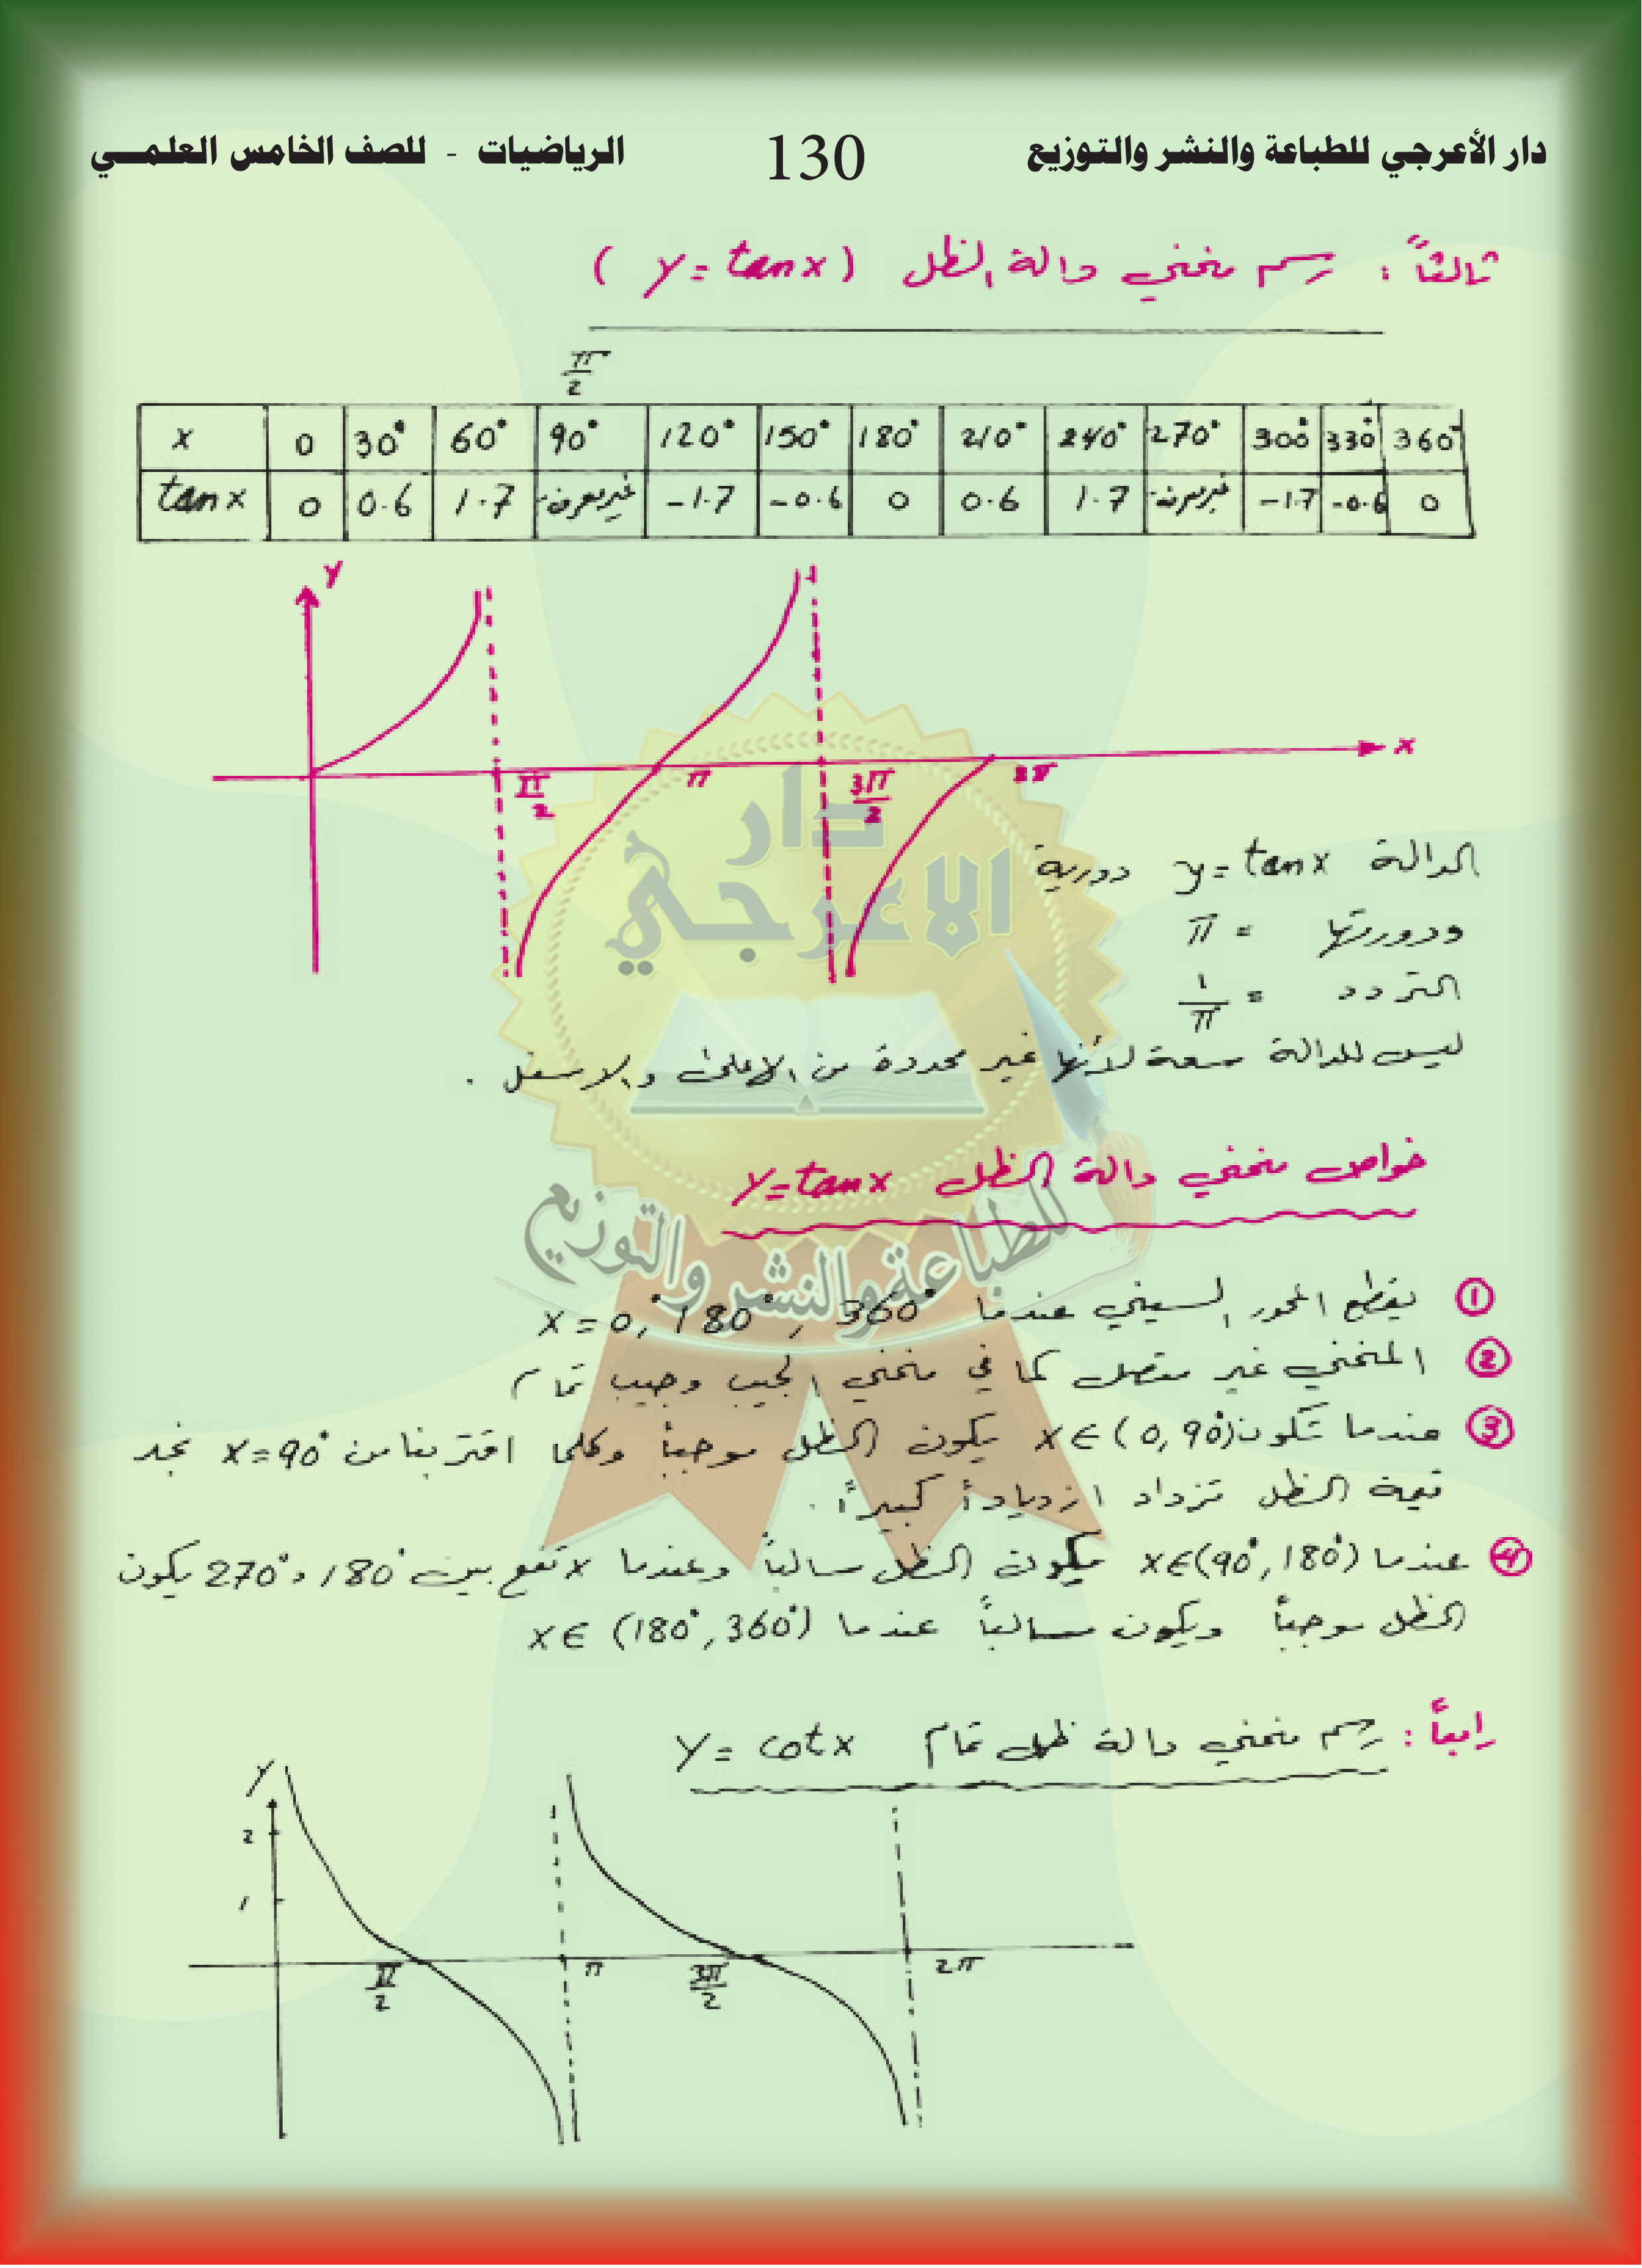 دار الأعرجي للطباعة والنشر والتوزيع 130 الرياضيات - للصف الخامس العلمـــي
ثالثاً : رسم منحني دالة الظل ( y = tan x )
π/2
x 0 30° 60° 90° 120° 150° 180° 210° 240° 270° 300° 330° 360°
tan x 0 0.6 1.7 غير معرف -1.7 -0.6 0 0.6 1.7 غير معرف -1.7 -0.6 0
y
x
π/2 π 3π/2 2π
الدالة y = tan x دورية
ودورتها = π
التردد = 1/π
ليس للدالة سعة لأنها غير محددة من الاعلى والاسفل .
خواص منحني دالة الظل y = tan x
① يقطع المحور السيني عندما x = 0°, 180°, 360°
② المنحني غير متصل كما في منحني الجيب وجيب تمام
③ عندما تكون x ∈ (0, 90°) يكون الظل موجباً وكلما اقتربنا من x = 90° نجد
قيمة الظل تزداد ازدياداً كبيراً .
④ عندما x ∈ (90°, 180°) يكون الظل سالباً وعندما x تقع بين 180° ، 270° يكون
الظل موجباً ويكون سالباً عندما x ∈ (180°, 360°)
رابعاً : رسم منحني دالة ظل تمام y = cot x
y
2
1
π/2 π 3π/2 2π
دار
الاعرجي
للطباعة والنشر والتوزيع